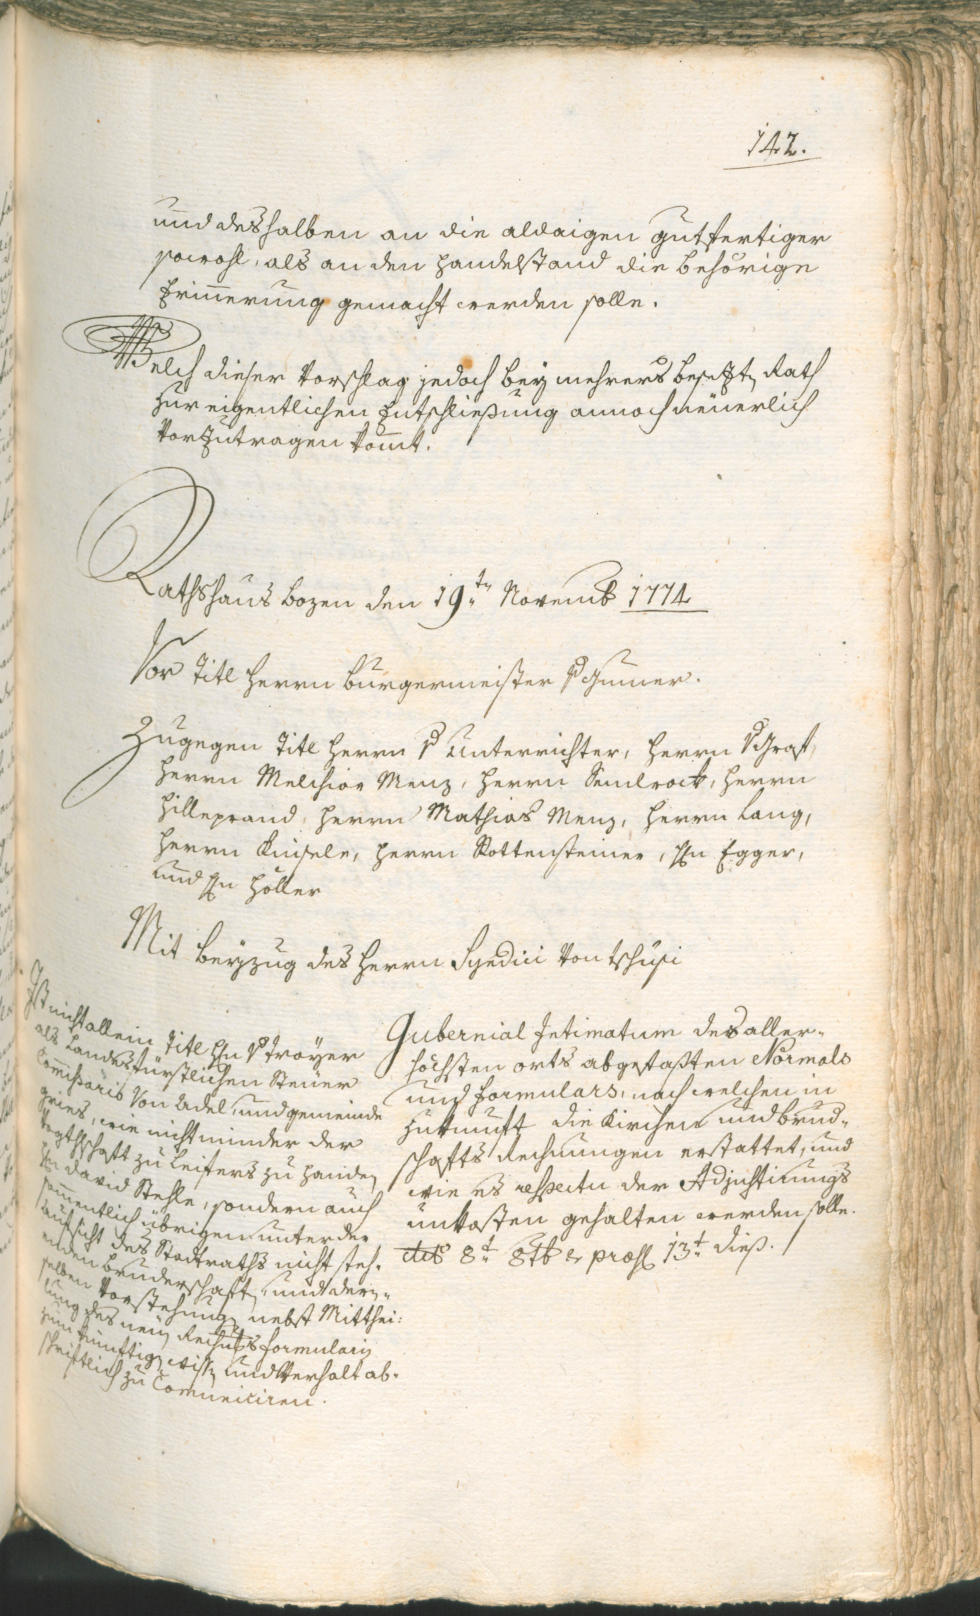 142.
und deshalben an die aldaigen gutfertiger
sowohl, als an den Handelstand die behörige
Erinnerung gemacht werden solle.
Welch dieser Vorschlag jedoch bey mehrers besezt Rath
zur eigentlichen Entschließung annoch neüerlich
vorzutragen komt.
Rathshaus Bozen den 19ten Novemb 1774
Vor Titl Herrn Burgermeister v Gumer.
Zugegen Titl Herrn v Unterrichter, Herrn v Graf,
Herrn Melchior Menz, Herrn Semlrock, Herrn
Hilleprand, Herrn Mathias Menz, Herrn Lang,
Herrn Kinsele, Herrn Rottensteiner, Hn Egger,
und Hn Höller
Mit Beyzug des Herrn Syndici von Tschusi
Gubernial Intimatum des aller-
höchsten orts abgefaßten Normals
und Formulars, nach welchen in
Zukunft die Kirchen und Brud-
schafts Rechnungen erstattet, und
wie es respectu der Adjustirungs
unkosten gehalten werden solle.
dto 8t 8tb & præs 13t dieß.
Ist nicht allein Titl Hn v Troyer
als Landsfürstlichen Steuer
Commißario von Adel, und gemeinde
Gries, wie nicht minder der
Vogthschaft zu Leifers zu handen
Hn David Stehle, sondern auch
sammentlich übrigen unter der
aufsicht des Stadtraths nicht steh-
enden Bruderschaft, und deren
selben Vorstehung nebst Mitthei-
lung des neüen Rechnungs formulars
zum künftig wiss und Verhalt ab-
schriftlich zu Comuniciren.